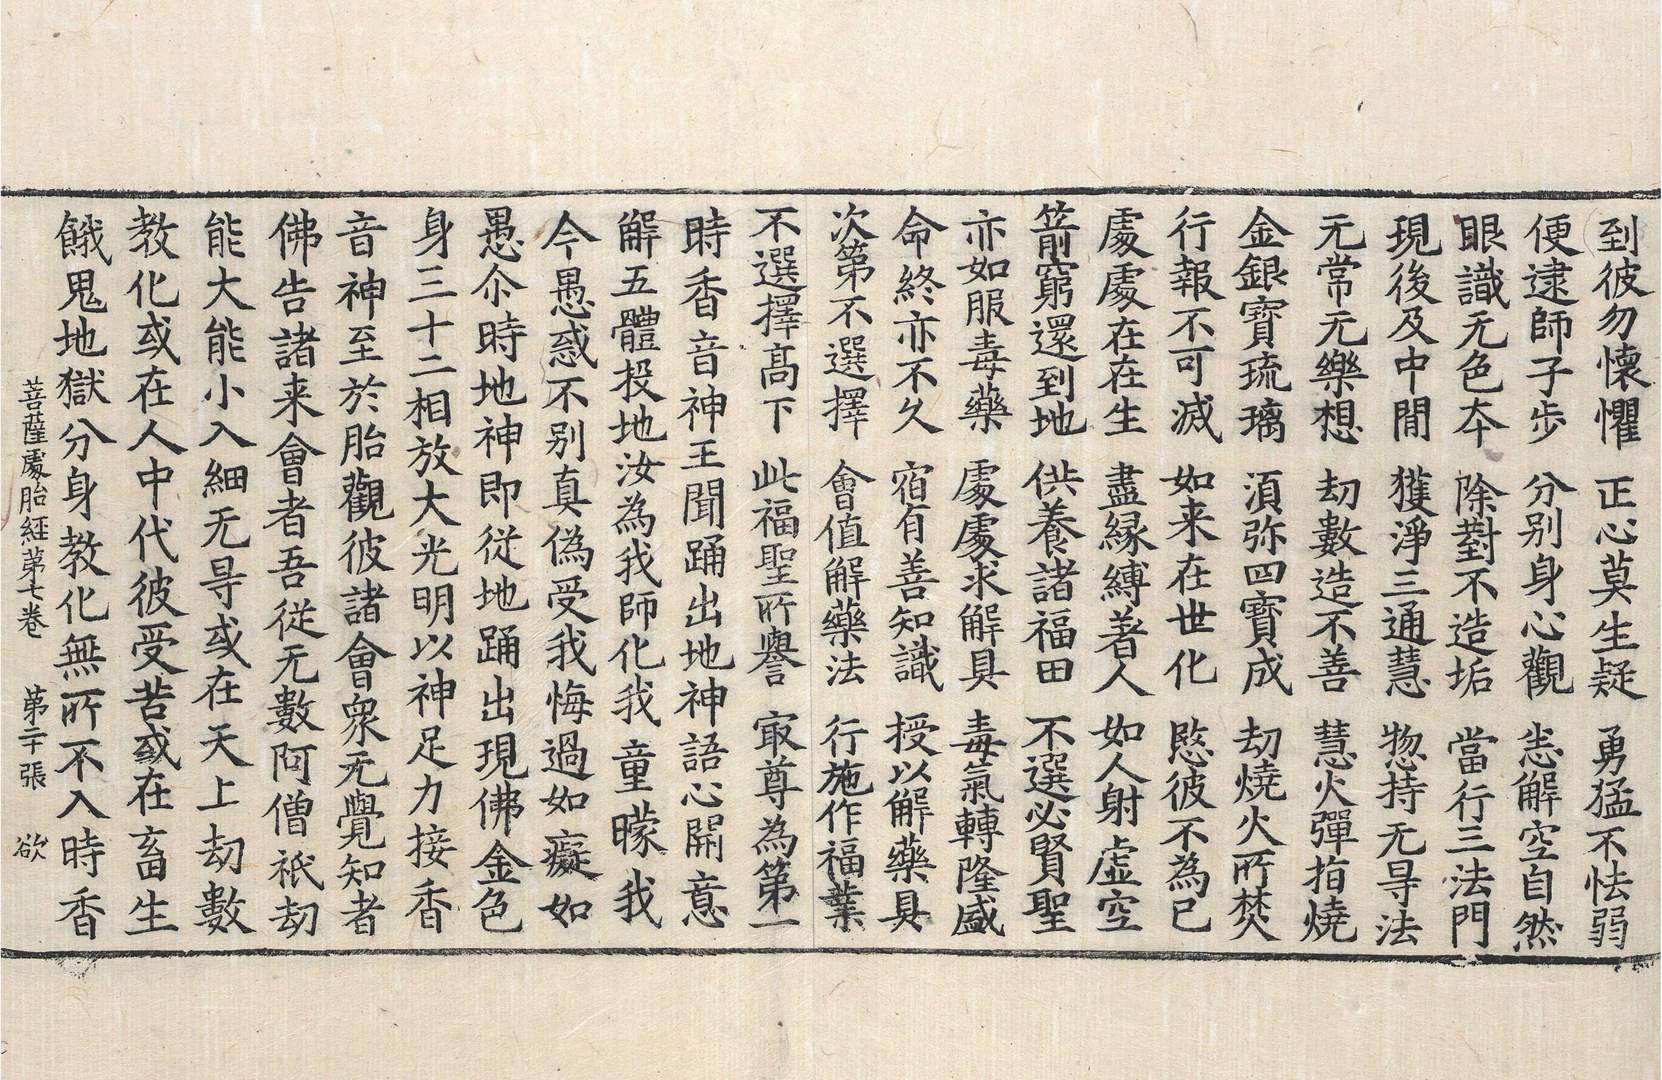 到彼勿懷懼 正心莫生疑 勇猛不怯弱
便逮師子步 分别身心觀 悉解空自然
眼識无色夲 除對不造垢 當行三法門
現後及中間 獲淨三通慧 惣持无㝵法
无常无樂想 劫數造不善 慧火彈指燒
金銀寶琉璃 湏弥四寶成 劫燒火所焚
行報不可滅 如来在世化 愍彼不為已
處處在在生 盡緣縛著人 如人射虛空
箭窮還到地 供養諸福田 不選必賢聖
亦如服毒藥 處處求解具 毒氣轉隆盛
命終亦不久 宿有善知識 授以解藥具
次第不選擇 會值解藥法 行施作福業
不選擇高下 此福聖所譽 㝡尊為第一
時香音神王聞踊出地神語心開意
解五體投地汝為我師化我童矇我
今愚惑不别真偽受我悔過如癡如
愚尒時地神即從地踊出現佛金色
身三十二相放大光明以神足力接香
音神至於胎觀彼諸會衆无覺知者
佛告諸来會者吾從无數阿僧祇劫
能大能小入細无㝵或在天上劫數
教化或在人中代彼受苦或在畜生
餓鬼地獄分身教化無所不入時香
菩薩處胎經第七卷 第二十張 欲